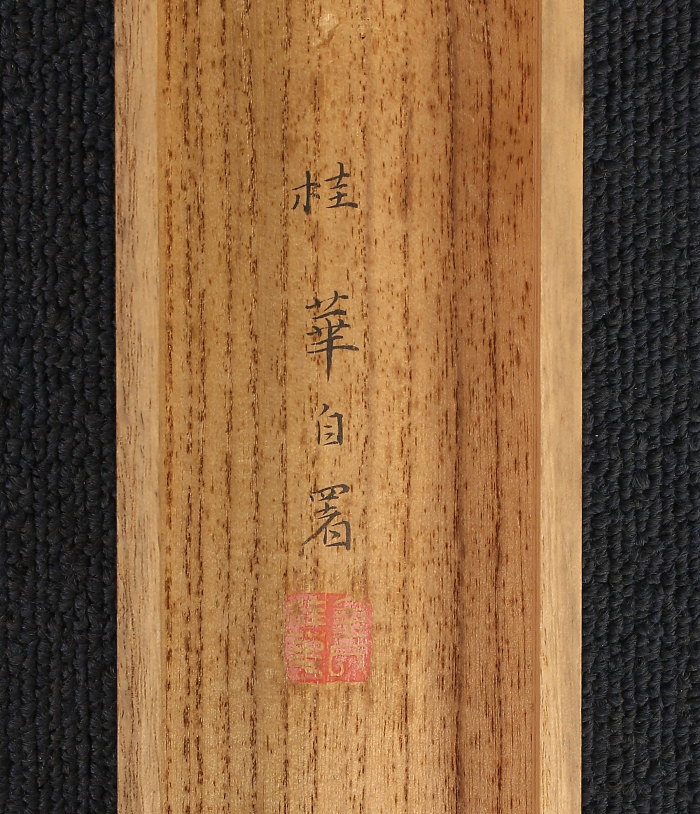 桂華自署